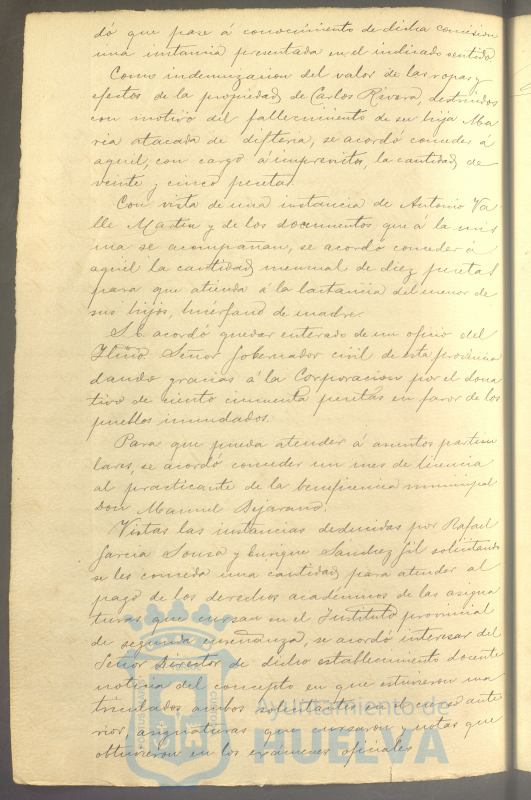 dó que pase á conocimiento de dicha comision
una instancia presentada en el indicado sentido.
Como indemnizacion del valor de las ropas y
efectos de la propiedad de Carlos Rivera, destruidos
con motivo del fallecimiento de su hija Ma
ria atacada de difteria, se acordó conceder á
aquel, con cargo á imprevistos, la cantidad de
veinte y cinco pesetas.
Con vista de una instancia de Antonio Va
lle Martin y de los documentos que á la mis
ma se acompañan, se acordó conceder á
aquel la cantidad mensual de diez pesetas
para que atienda á la lactancia del menor de
sus hijos, huérfano de madre.
Se acordó quedar enterado de un oficio del
Iltmo. Señor Gobernador civil de esta provincia
dando gracias á la Corporacion por el dona
tivo de ciento cincuenta pesetas en favor de los
pueblos inundados.
Para que pueda atender á asuntos particu
lares, se acordó conceder un mes de licencia
al practicante de la beneficencia municipal
Don Manuel Bejarano.
Vistas las instancias deducidas por Rafael
Garcia Sousa y Enrique Sanchez Gil solicitando
se les conceda una cantidad para atender al
pago de los derechos académicos de las asigna
turas que cursan en el Instituto provincial
de segunda enseñanza, se acordó interesar del
Señor Director de dicho establecimiento docente
noticia del concepto en que estuvieron ma
triculados ambos solicitantes en el curso ante
rior, asignaturas que cursaron y notas que
obtuvieron en los exámenes oficiales
Ayuntamiento de
HUELVA